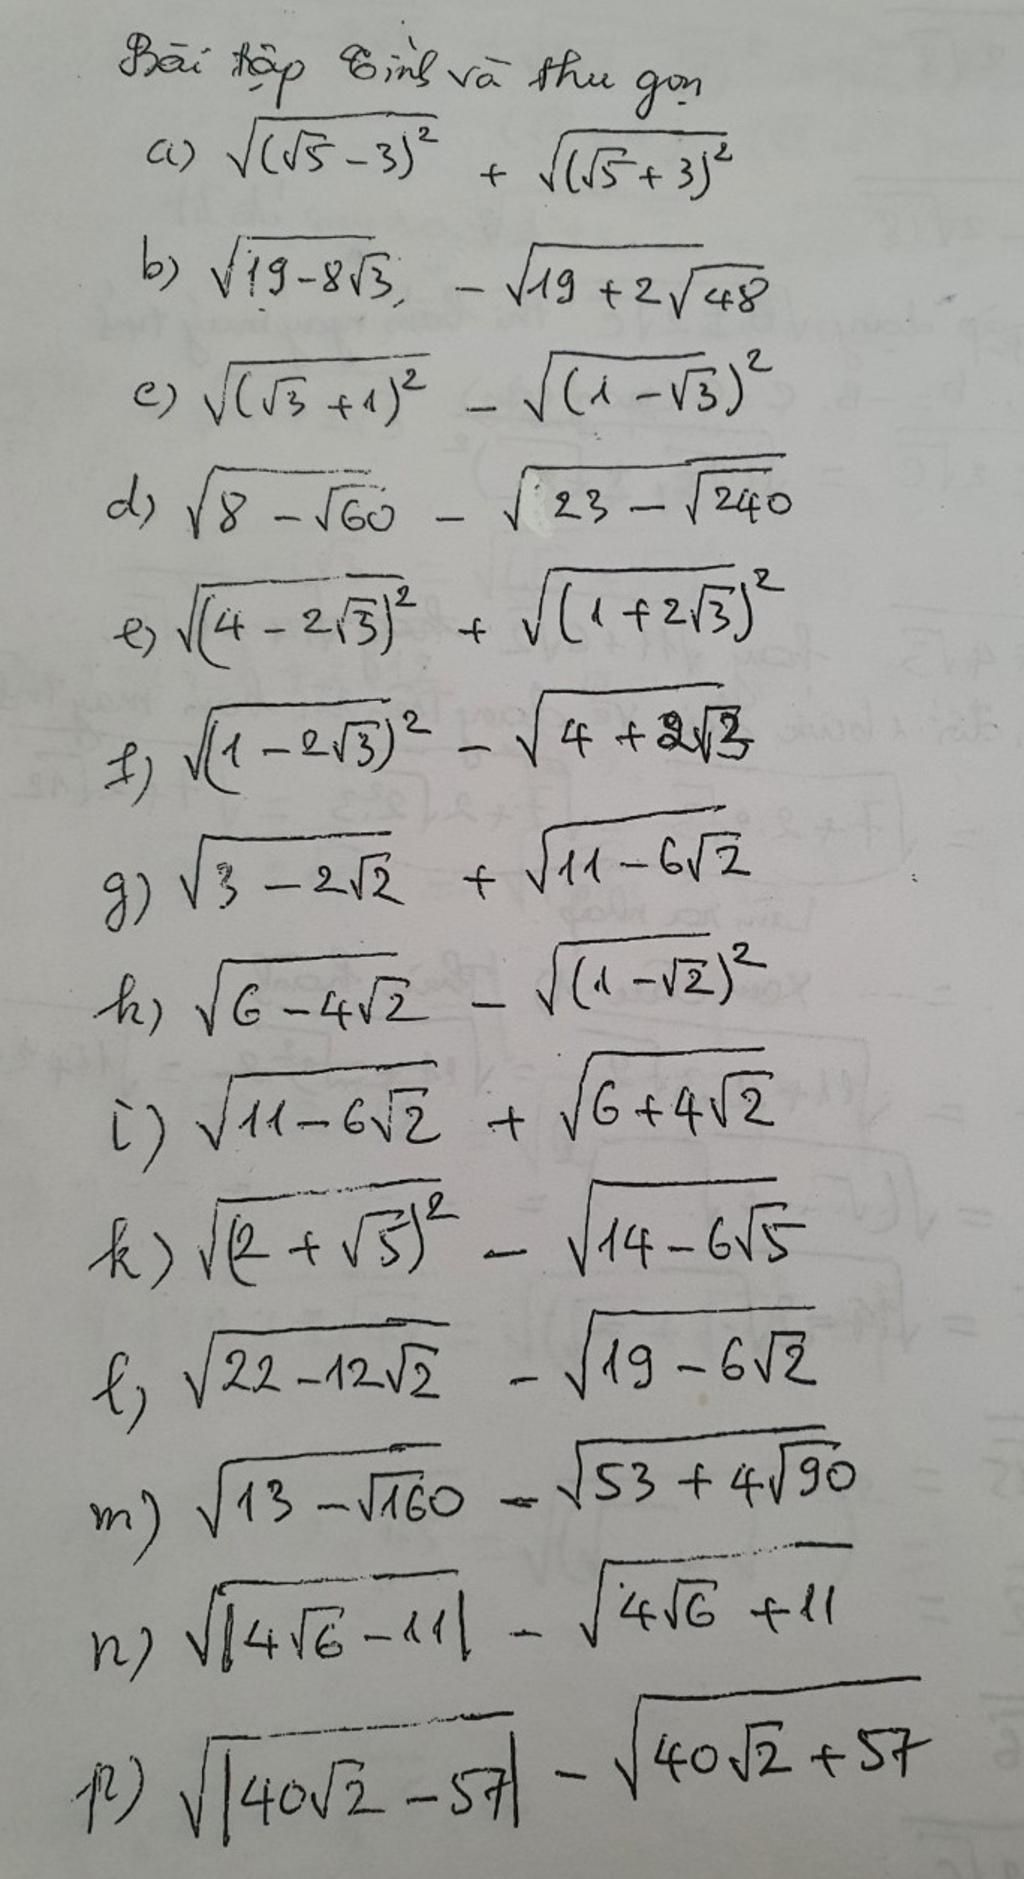 Bài tập Tính và thu gọn
a) √(√5 - 3)² + √(√5 + 3)²
b) √19 - 8√3 - √19 + 2√48
c) √(√3 + 1)² - √(1 - √3)²
d) √8 - √60 - √23 - √240
e) √(4 - 2√3)² + √(1 + 2√3)²
f) √(1 - 2√3)² - √4 + 2√3
g) √3 - 2√2 + √11 - 6√2
h) √6 - 4√2 - √(1 - √2)²
i) √11 - 6√2 + √6 + 4√2
k) √(2 + √5)² - √14 - 6√5
l) √22 - 12√2 - √19 - 6√2
m) √13 - √160 - √53 + 4√90
n) √|4√6 - 11| - √4√6 + 11
p) √|40√2 - 57| - √40√2 + 57